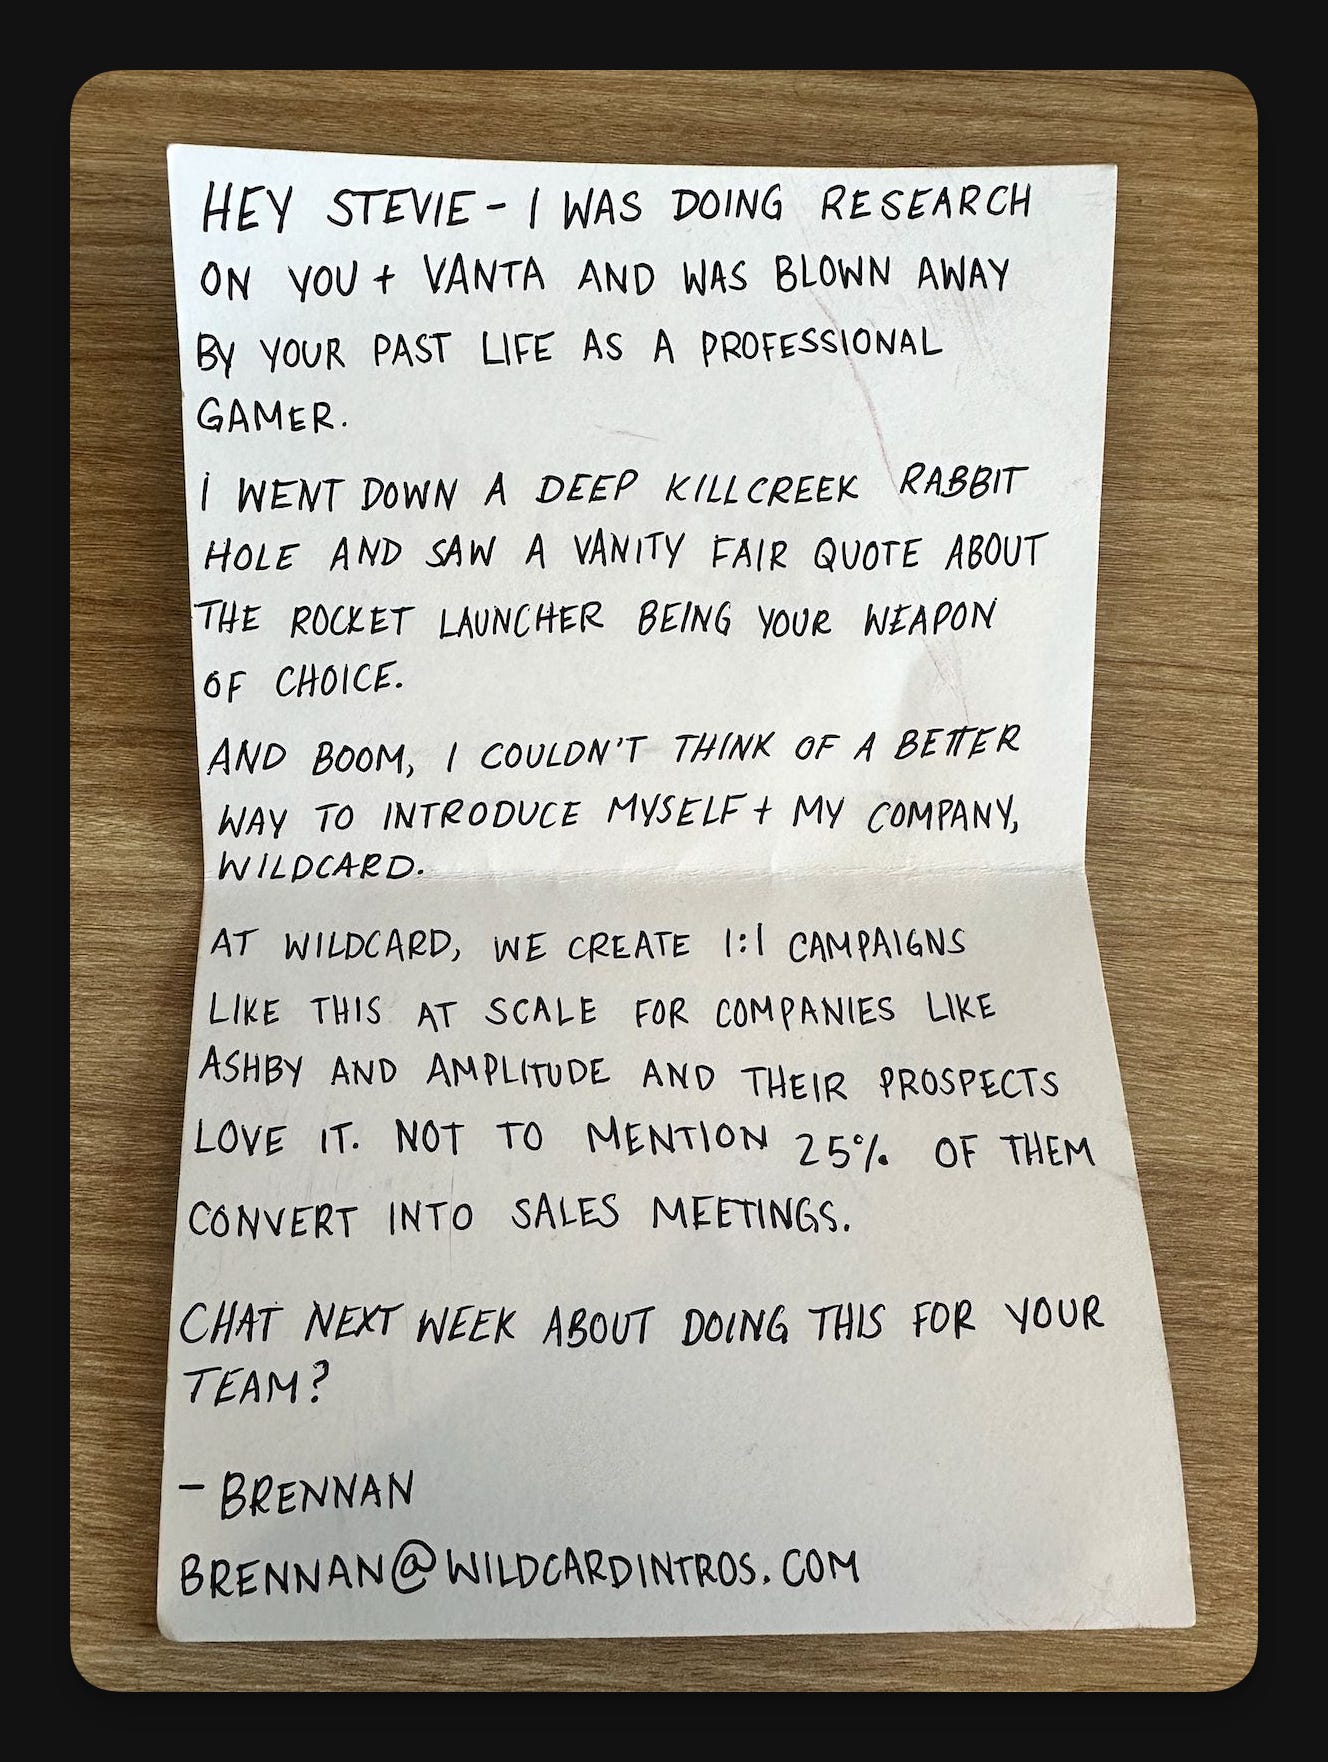 HEY STEVIE - I WAS DOING RESEARCH
ON YOU + VANTA AND WAS BLOWN AWAY
BY YOUR PAST LIFE AS A PROFESSIONAL
GAMER.
I WENT DOWN A DEEP KILLCREEK RABBIT
HOLE AND SAW A VANITY FAIR QUOTE ABOUT
THE ROCKET LAUNCHER BEING YOUR WEAPON
OF CHOICE.
AND BOOM, I COULDN'T THINK OF A BETTER
WAY TO INTRODUCE MYSELF + MY COMPANY,
WILDCARD.
AT WILDCARD, WE CREATE 1:1 CAMPAIGNS
LIKE THIS AT SCALE FOR COMPANIES LIKE
ASHBY AND AMPLITUDE AND THEIR PROSPECTS
LOVE IT. NOT TO MENTION 25% OF THEM
CONVERT INTO SALES MEETINGS.
CHAT NEXT WEEK ABOUT DOING THIS FOR YOUR
TEAM?
- BRENNAN
BRENNAN@WILDCARDINTROS.COM